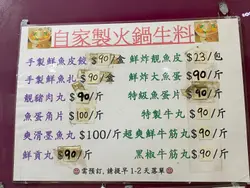 自家製火鍋生料
手製鮮魚皮餃 $90/盒 鮮炸魚皮 $23/包
手製鮮魚扎 $90/盒 鮮炸大魚蛋 $90/斤
靚豬肉丸 $90/斤 特級魚蛋片 $90/斤
魚蛋角片 $100/斤 特製牛丸 $90/斤
爽滑墨魚丸 $100/斤 超爽鮮牛筋丸 $90/斤
鮮貢丸 $90/斤 黑椒牛筋丸 $90/斤
需預訂,請提早1-2天落單